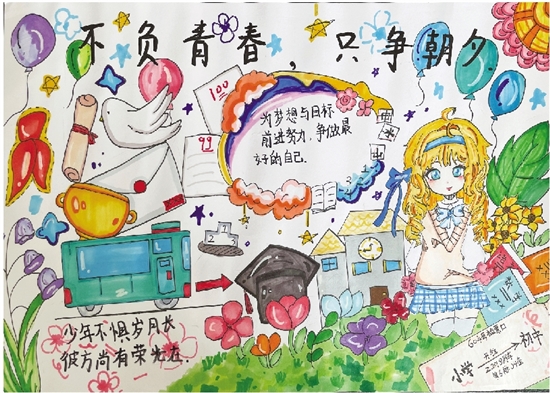 不负青春，只争朝夕
100
99
为梦想与目标
前进努力，争做最
好的自己。
2 1 3
少年不惧岁月长
彼方尚有荣光在.
小学
初中